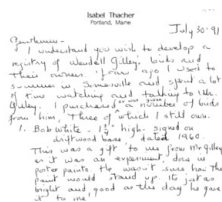 Isabel Thacher
Portland, Maine
July 30 · 91
Gentlemen -
I understand you wish to develop a
registry of Wendell Gilley birds and
their owners. Years ago I used to
summer in Somesville and spent a lot
of time watching and talking to Mr.
Gilley. I purchased a number of birds
from him, three of which I still own.
1. Bob White - high. signed on
driftwood base, dated 1960.
This was a gift to me from Mr Gilley
as it was an experiment, done in
poster paints. He wasn't sure how the
paint would stand up. Its just as
bright and good as the day he gave
it to me.